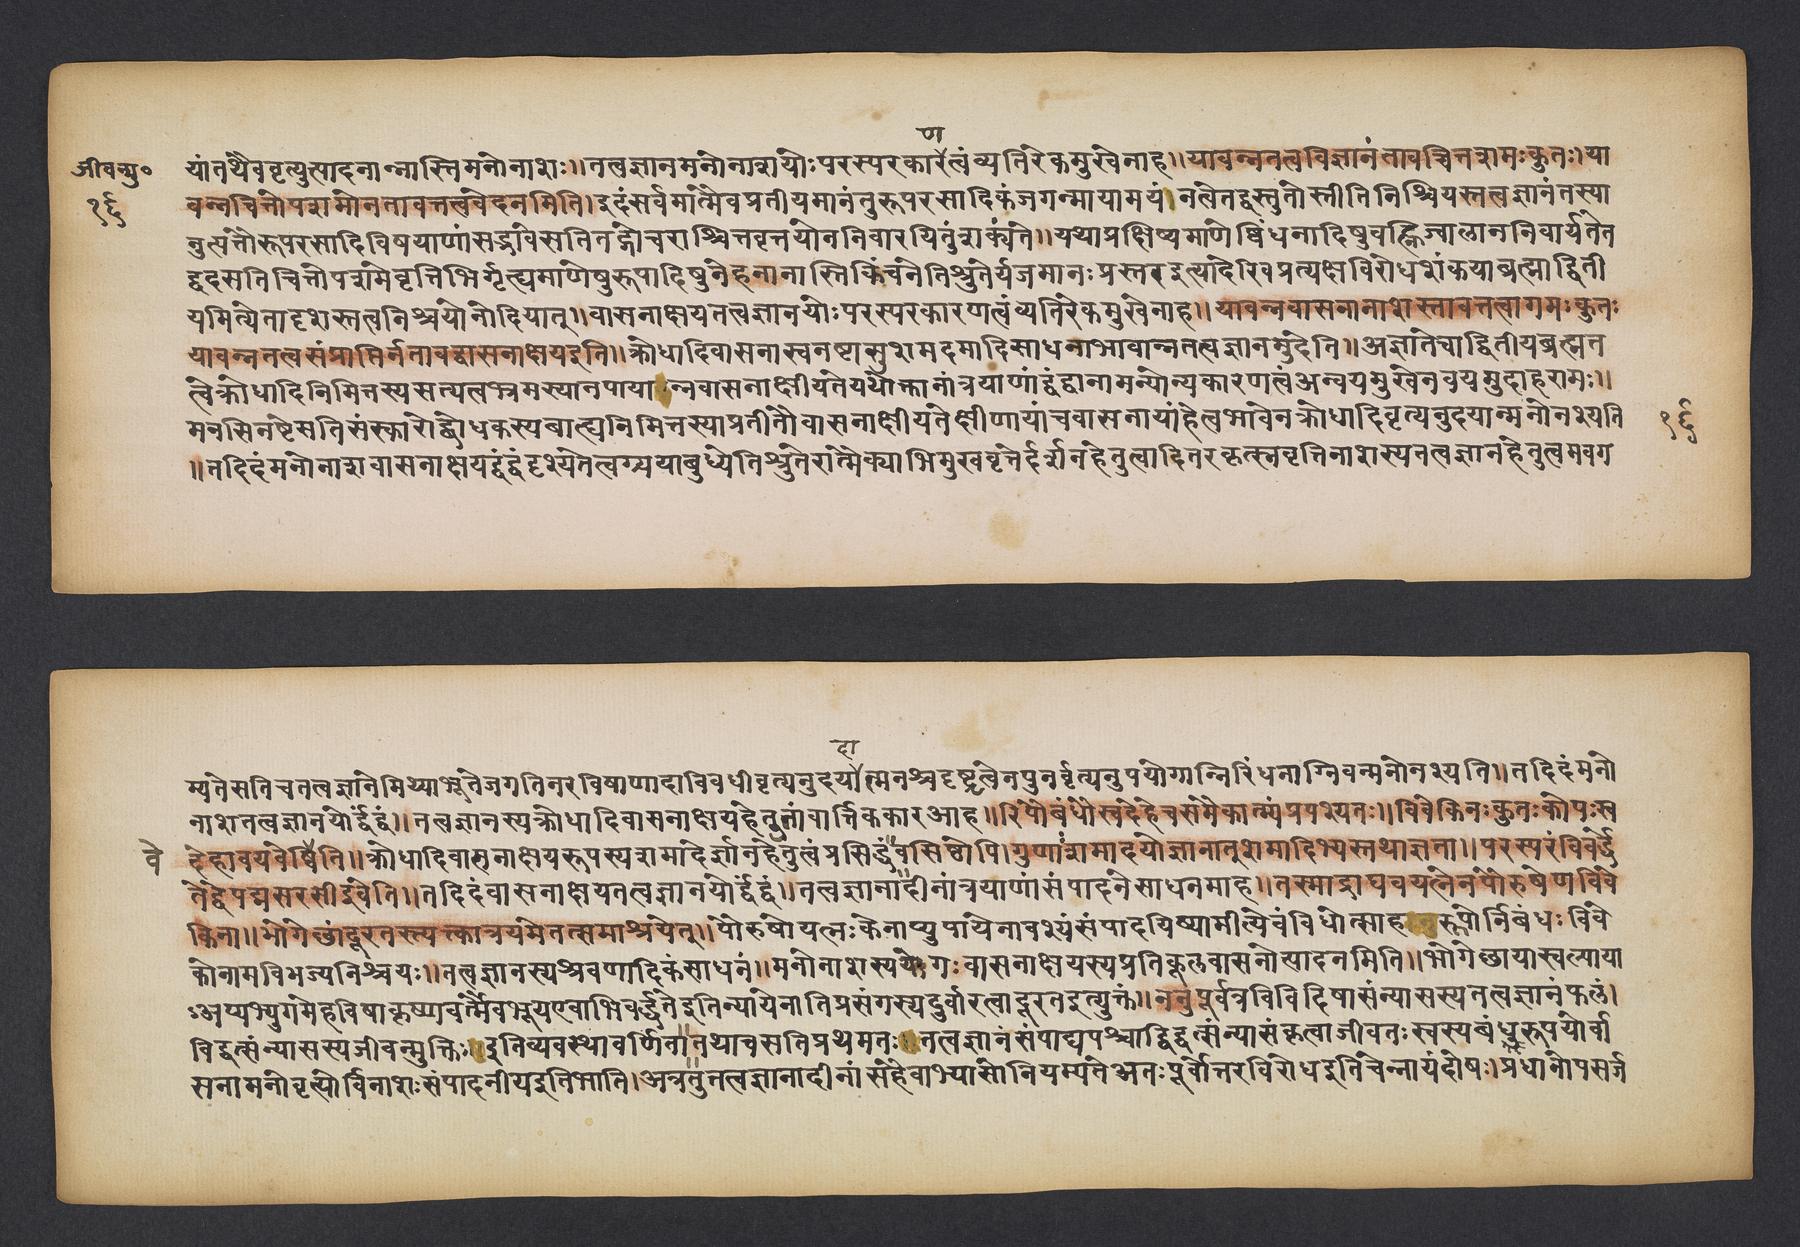 ण
जीवन्मु॰
१६
यां तथैव वृत्युत्पादनान्नास्ति मनोनाशः॥ तत्वज्ञानमनोनाशयोः परस्परकारत्वं व्यतिरेकमुखेनाह॥ यावन्न तत्वविज्ञानं तावच्चित्तशमः कुतः। या
वन्न चित्तोपशमो न तावत्तत्ववेदनमिति। इदं सर्वमात्मैव प्रतीयमानं तु रूपरसादिकं जगन्मायामयं। नत्वेतद्वस्तुतोस्तीति निश्चियस्तत्वज्ञानं तस्या
नुत्पत्तौ रूपरसादिविषयाणां सद्भावे सति तद्गोचराश्चित्तवृत्तयो न निवारयितुं शक्यंते॥ यथा प्रक्षिप्यमाणेष्विंधनादिषु वह्निज्वाला न निवार्यते त
द्वदसति चित्तोपशमे वृत्तिभिर्गृह्यमाणेषु रूपादिषु नेह नानास्ति किंचनेति श्रुतेर्यजमानः प्रस्तर इत्यादेरिव प्रत्यक्षविरोधशंकया ब्रह्माद्विती
यमित्येतादृशस्तत्वनिश्चयो नोदियात्॥ वासनाक्षयतत्वज्ञानयोः परस्परकारणत्वं व्यतिरेकमुखेनाह॥ यावन्न वासनानाशस्तावत्तत्वागमः कुतः
यावन्न तत्वसंप्राप्तिर्न तावद्वासनाक्षय इति॥ क्रोधादिवासनास्वनष्टासु शमदमादिसाधनाभावान्न तत्वज्ञानमुदेति॥ अज्ञाते चाद्वितीयब्रह्मत
त्वे क्रोधादिनिमित्तस्य सत्यत्वभ्रमस्यानपायान्न वासना क्षीयते यथोक्तानां त्रयाणां द्वंद्वानामन्योन्यकारणत्वं अन्वयमुखेन वयमुदाहरामः॥
मनसि नष्टे सति संस्कारोद्बोधकस्य बाह्यनिमित्तस्याप्रतीतौ वासना क्षीयते क्षीणायां च वासनायां हेत्वभावेन क्रोधादिवृत्यनुदयान्मनो नश्यति
१६
॥ तदिदं मनोनाशवासनाक्षयद्वंद्वं दृश्यते त्वग्र्यया बुध्येति श्रुतेरात्मैक्याभिमुखवृत्तेर्दर्शनहेतुत्वादितरकृत्स्नवृत्तिनाशस्य तत्वज्ञानहेतुत्वमवग
दा
म्यते सति च तत्वज्ञाने मिथ्याभूते जगति नरविषाणादाविव धीवृत्यनुदयात्मनश्च दृष्टत्वेन पुनर्वृत्यनुपयोगान्निरिंधनाग्निवन्मनो नश्यति॥ तदिदं मनो
नाशतत्वज्ञानयोर्द्वंद्वं॥ तत्वज्ञानस्य क्रोधादिवासनाक्षयहेतुतां वार्त्तिककार आह॥ रिपौ बंधौ स्वदेहे च समैकात्म्यं प्रपश्यतः॥ विवेकिनः कुतः कोपः स्व
वे
देहावयवेष्विति॥ क्रोधादिवासनाक्षयरूपस्य शमादेर्ज्ञानहेतुत्वं प्रसिद्धं वसिष्ठोपि। गुणाः शमादयो ज्ञानात् शमादिभ्यस्तथाज्ञता॥ परस्परं विवर्द्धे
ते द्वे पद्मसरसी इवेति॥ तदिदं वासनाक्षयतत्वज्ञानयोर्द्वंद्वं॥ तत्वज्ञानादीनां त्रयाणां संपादने साधनमाह॥ तस्माद्राघव यत्नेन पौरुषेण विवे
किना॥ भोगेछां दूरतस्त्यत्क्वा त्रयमेतत्समाश्रयेत्॥ पौरुषो यत्नः केनाप्युपायेनावश्यं संपादयिष्यामीत्येवं विधोत्साहरूपो निर्बंधः विवे
को नाम विभज्य निश्चयः॥ तत्वज्ञानस्य श्रवणादिकं साधनं॥ मनोनाशस्य योगः वासनाक्षयस्य प्रतिकूलवासनोत्पादनमिति॥ भोगेछायास्वल्पाया
अप्यभ्युगमे हविषा कृष्णवर्त्मैव भूय एवाभिवर्द्धते इति न्यायेनातिप्रसंगस्य दुर्वारत्वाद्दूरत इत्युक्तं॥ ननु पूर्वत्र विविदिषासंन्यासस्य तत्वज्ञानं फलं।
विद्वत्संन्यासस्य जीवन्मुक्तिः। इति व्यवस्था वर्णिता तथा च सति प्रथमतः तत्वज्ञानं संपाद्य पश्चाद्विद्वत्संन्यासं कृत्वा जीवतः स्वस्य बंधरूपयोर्वा
सनामनोवृत्त्योर्विनाशः संपादनीय इति भाति। अत्र तु तत्वज्ञानादीनां सहैवाभ्यासो नियम्यते अतः पूर्वोत्तरविरोध इति चेन्नायं दोषः। प्रधानोपसर्ज